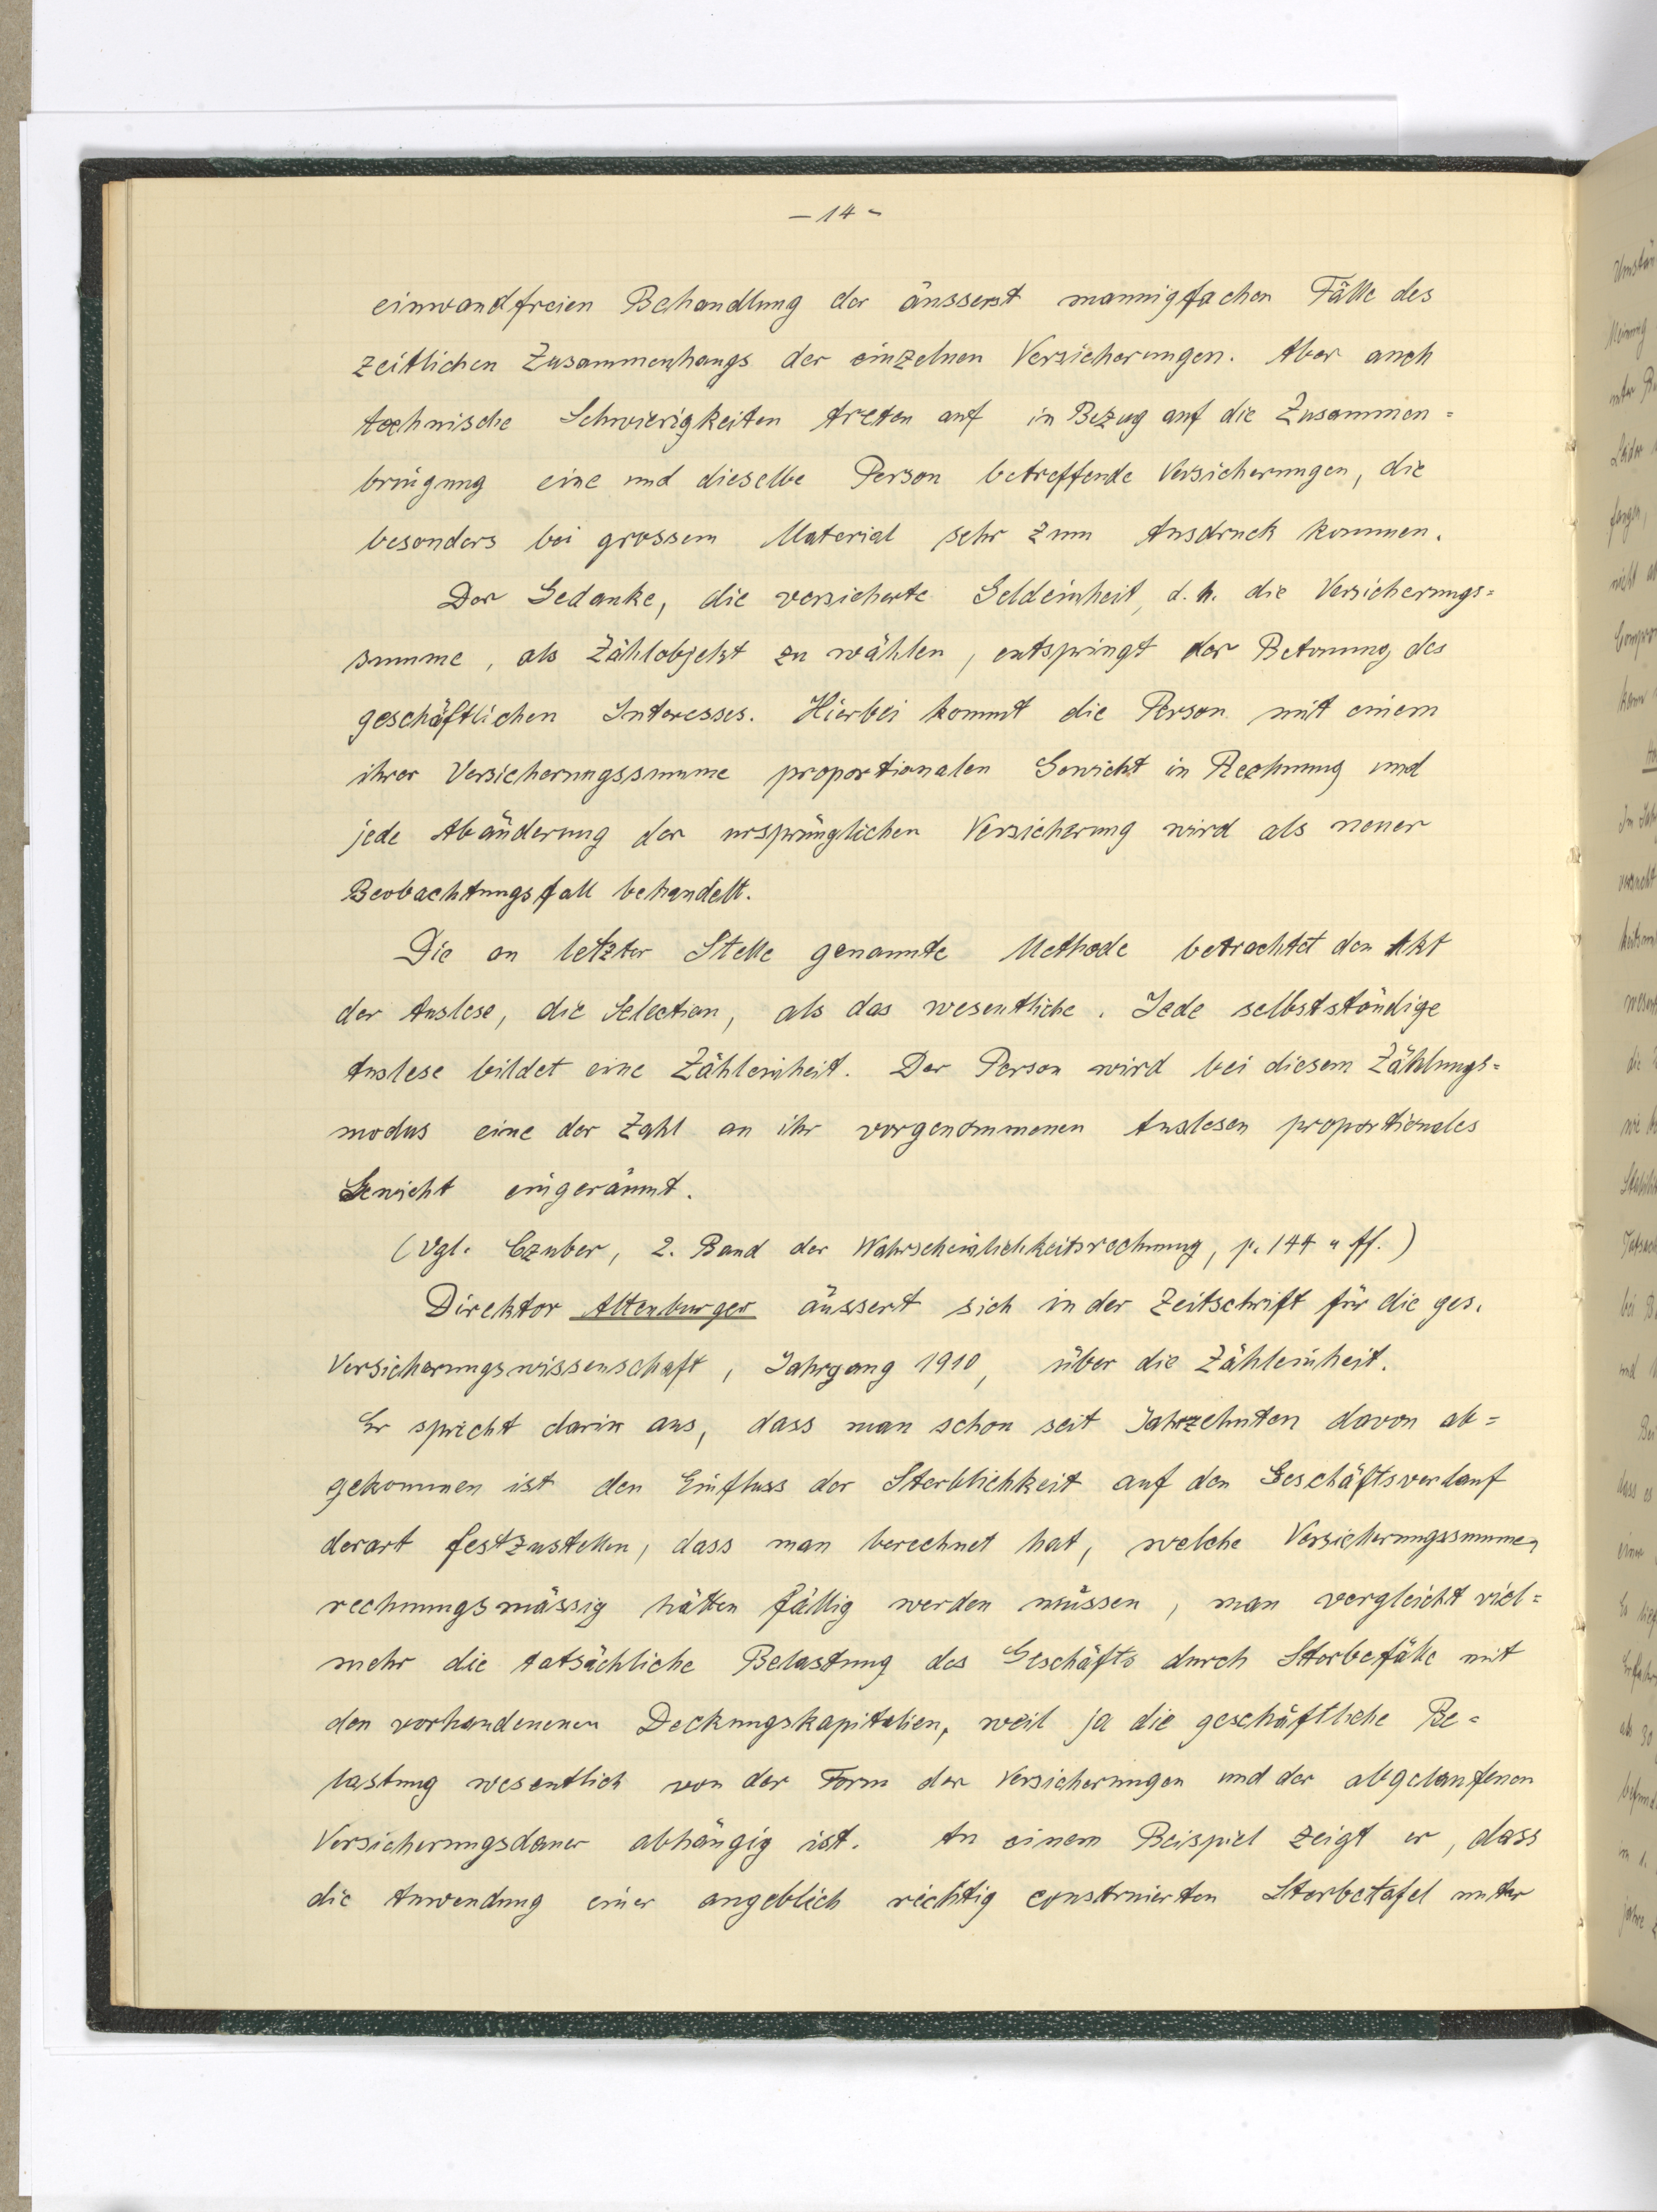 – 14 –
einwandfreien Behandlung der äusserst mannigfachen Fälle des
zeitlichen Zusammenhangs der einzelnen Versicherungen. Aber auch
technische Schwierigkeiten treten auf in Bezug auf die Zusammen=
bringung eine und dieselbe Person betreffende Versicherungen, die
besonders bei grossem Material sehr zum Ausdruck kommen.
Der Gedanke, die versicherte Geldeinheit, d. h. die Versicherungs=
summe, als Zählobjekt zu wählen, entspringt der Betonung des
geschäftlichen Interesses. Hierbei kommt die Person mit einem
ihrer Versicherungssumme proportionalen Gewicht in Rechnung und
jede Abänderung der ursprünglichen Versicherung wird als neuer
Beobachtungsfall behandelt.
Die an letzter Stelle genannte Methode betrachtet den Akt
der Auslese, die Selection, als das wesentliche. Jede selbstständige
Auslese bildet eine Zähleinheit. Der Person wird bei diesem Zählungs=
modus eine der Zahl an ihr vorgenommenen Auslesen proportionales
Gewicht eingeräumt.
(Vgl. Czuber, 2. Band der Wahrscheinlichkeitsrechnung, p. 144 u ff.)
Direktor Altenburger äussert sich in der Zeitschrift für die ges.
Versicherungswissenschaft, Jahrgang 1910, über die Zähleinheit.
Er spricht darin aus, dass man schon seit Jahrzehnten davon ab=
gekommen ist den Einfluss der Sterblichkeit auf den Geschäftsverlauf
derart festzustellen, dass man berechnet hat, welche Versicherungssummen
rechnungsmässig hätten fällig werden müssen, man vergleicht viel=
mehr die tatsächliche Belastung des Geschäfts durch Sterbefälle mit
den vorhandenenen Deckungskapitalien, weil ja die geschäftliche Be=
lastung wesentlich von der Form der Versicherungen und der abgelaufenen
Versicherungsdauer abhängig ist. An einem Beispiel zeigt er, dass
die Anwendung einer angeblich richtig construierten Sterbetafel unter